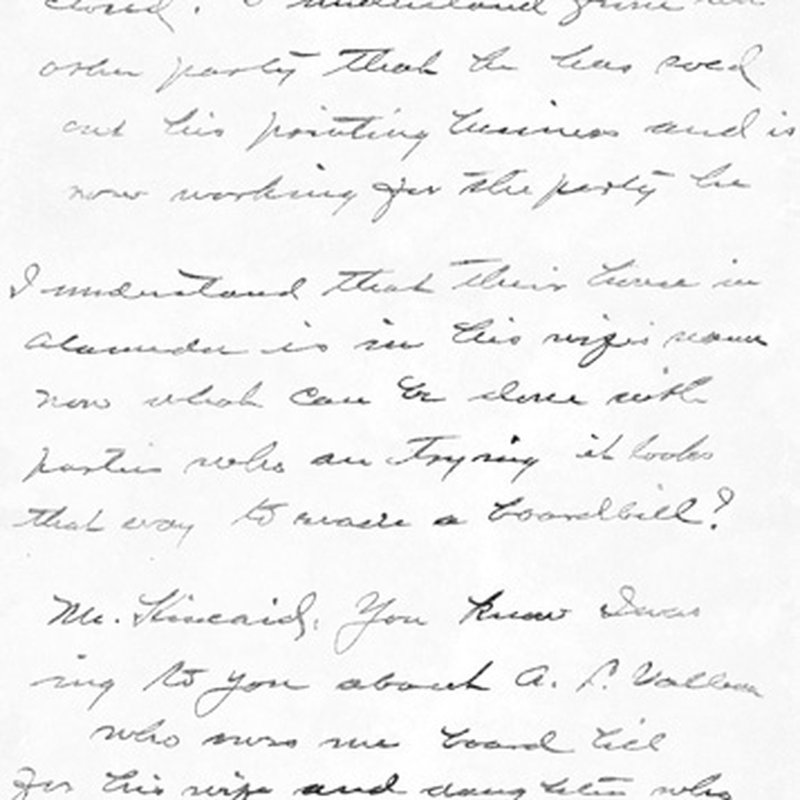 closed. I understand from an
other party that he has sold
out his printing business and is
now working for the party he
I understand that their house in
Alameda is in his wife's name
now what can be done with
parties who are trying it looks
that way to evade a boardbill?
Mr. Kincaid, You know I was
ing to you about A. L.
who owes me board bill
for his wife and daughter who